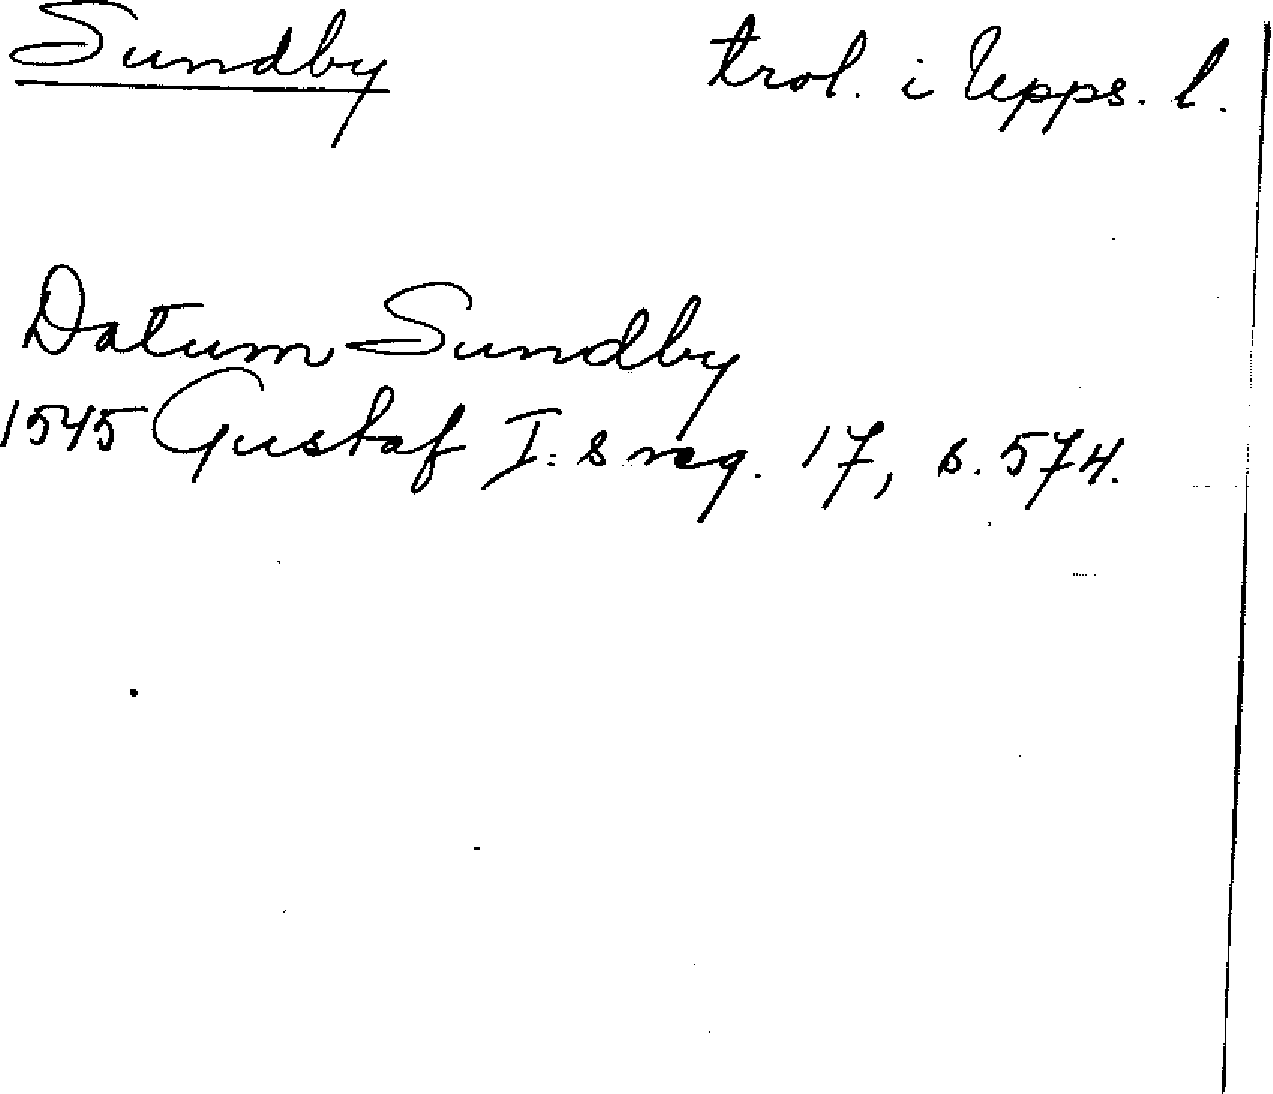 Sundby trol. i Upps. l.
Datum Sundby
1545 Gustaf I:s reg. 17, s. 574.